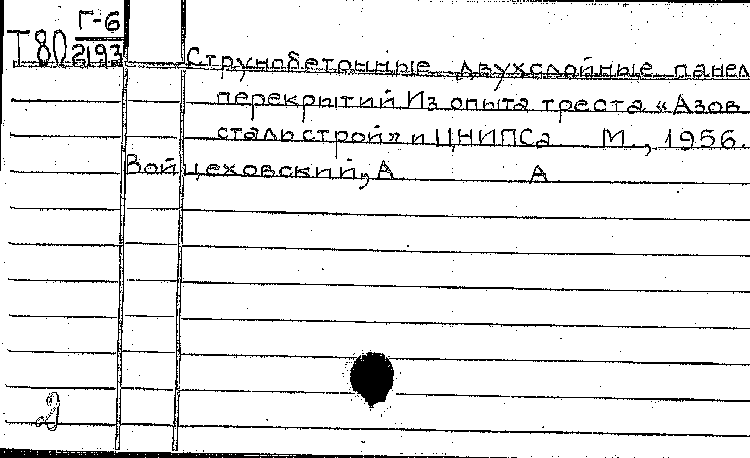 Г-6
Т80 2193
Струнобетонные двухслойные панел
перекрытий Из опыта треста «Азов
стальстрой» и ЦНИПСа М., 1956.
Войцеховский, А А
2